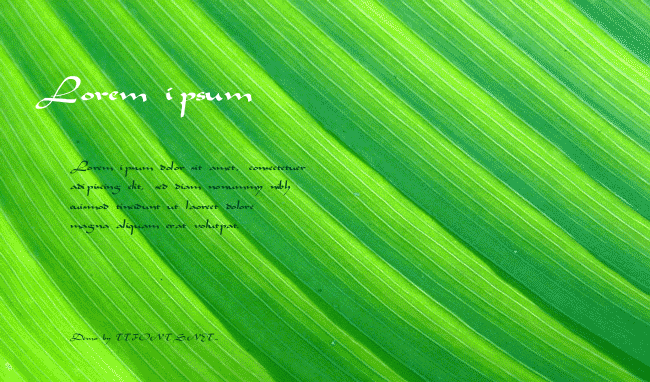 Lorem ipsum
Lorem ipsum dolor sit amet, consectetuer
adipiscing elit, sed diam nonummy nibh
euismod tincidunt ut laoreet dolore
magna aliquam erat volutpat.
Demo by TTFONTS.NET